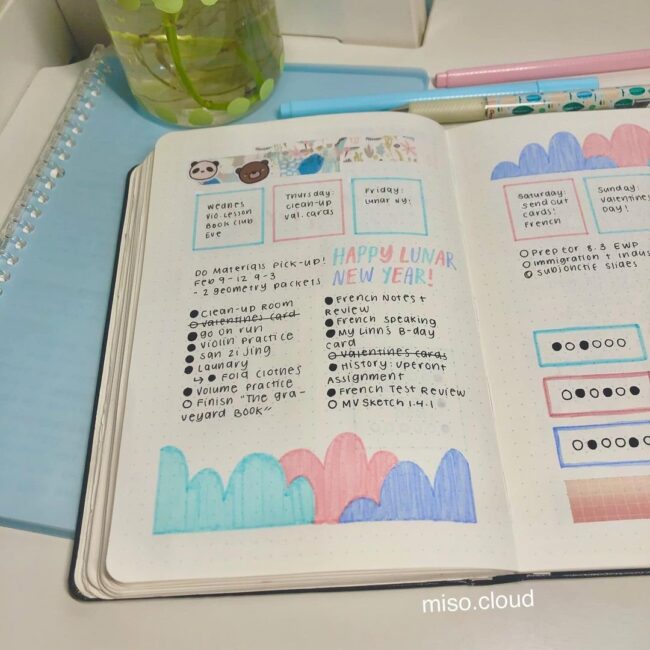 Wednes
Vio. Lesson
Book Club
Eve
Thursday:
clean-up
val. cards
Friday:
Lunar NY!
Do Materials Pick-up!
Feb 9-12 9-3
- 2 geometry packets
HAPPY LUNAR
NEW YEAR!
Clean-up Room
Valentines card
go on run
violin Practice
san zi jing
Laundry
↳ Fold clothes
Volume Practice
Finish "The gra-
veyard BOOK"
French Notes +
Review
French speaking
My Linn's B-day
card
Valentines cards
History: upfront
Assignment
French Test Review
MV Sketch 1.4.1
Saturday:
send out
cards!
French
Sunday:
valentine
Day!
Prep for 8.3 EWP
immigration + indus
subjonctif slides
miso.cloud